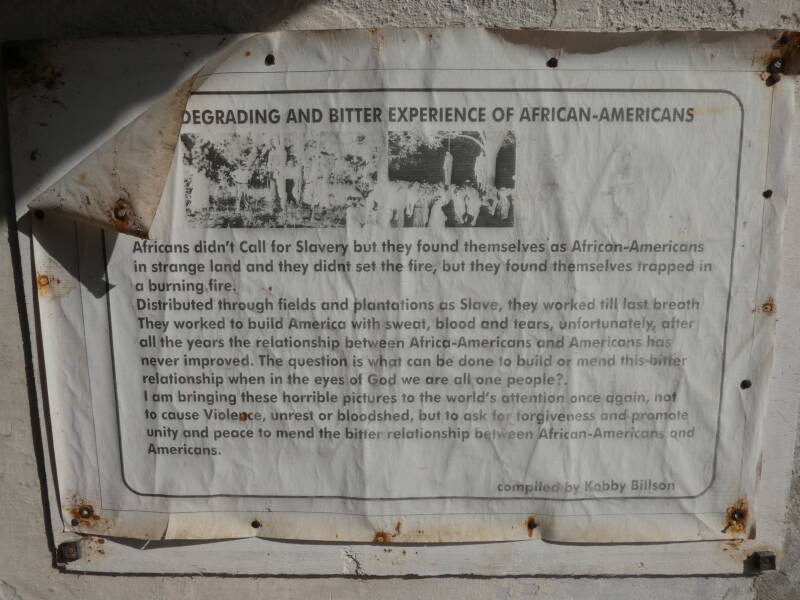 DEGRADING AND BITTER EXPERIENCE OF AFRICAN-AMERICANS
Africans didn't Call for Slavery but they found themselves as African-Americans
in strange land and they didnt set the fire, but they found themselves trapped in
a burning fire.
Distributed through fields and plantations as Slave, they worked till last breath
They worked to build America with sweat, blood and tears, unfortunately, after
all the years the relationship between Africa-Americans and Americans has
never improved. The question is what can be done to build or mend this bitter
relationship when in the eyes of God we are all one people?.
I am bringing these horrible pictures to the world's attention once again, not
to cause Violence, unrest or bloodshed, but to ask for forgiveness and promote
unity and peace to mend the bitter relationship between African-Americans and
Americans.
compiled by Kobby Billson